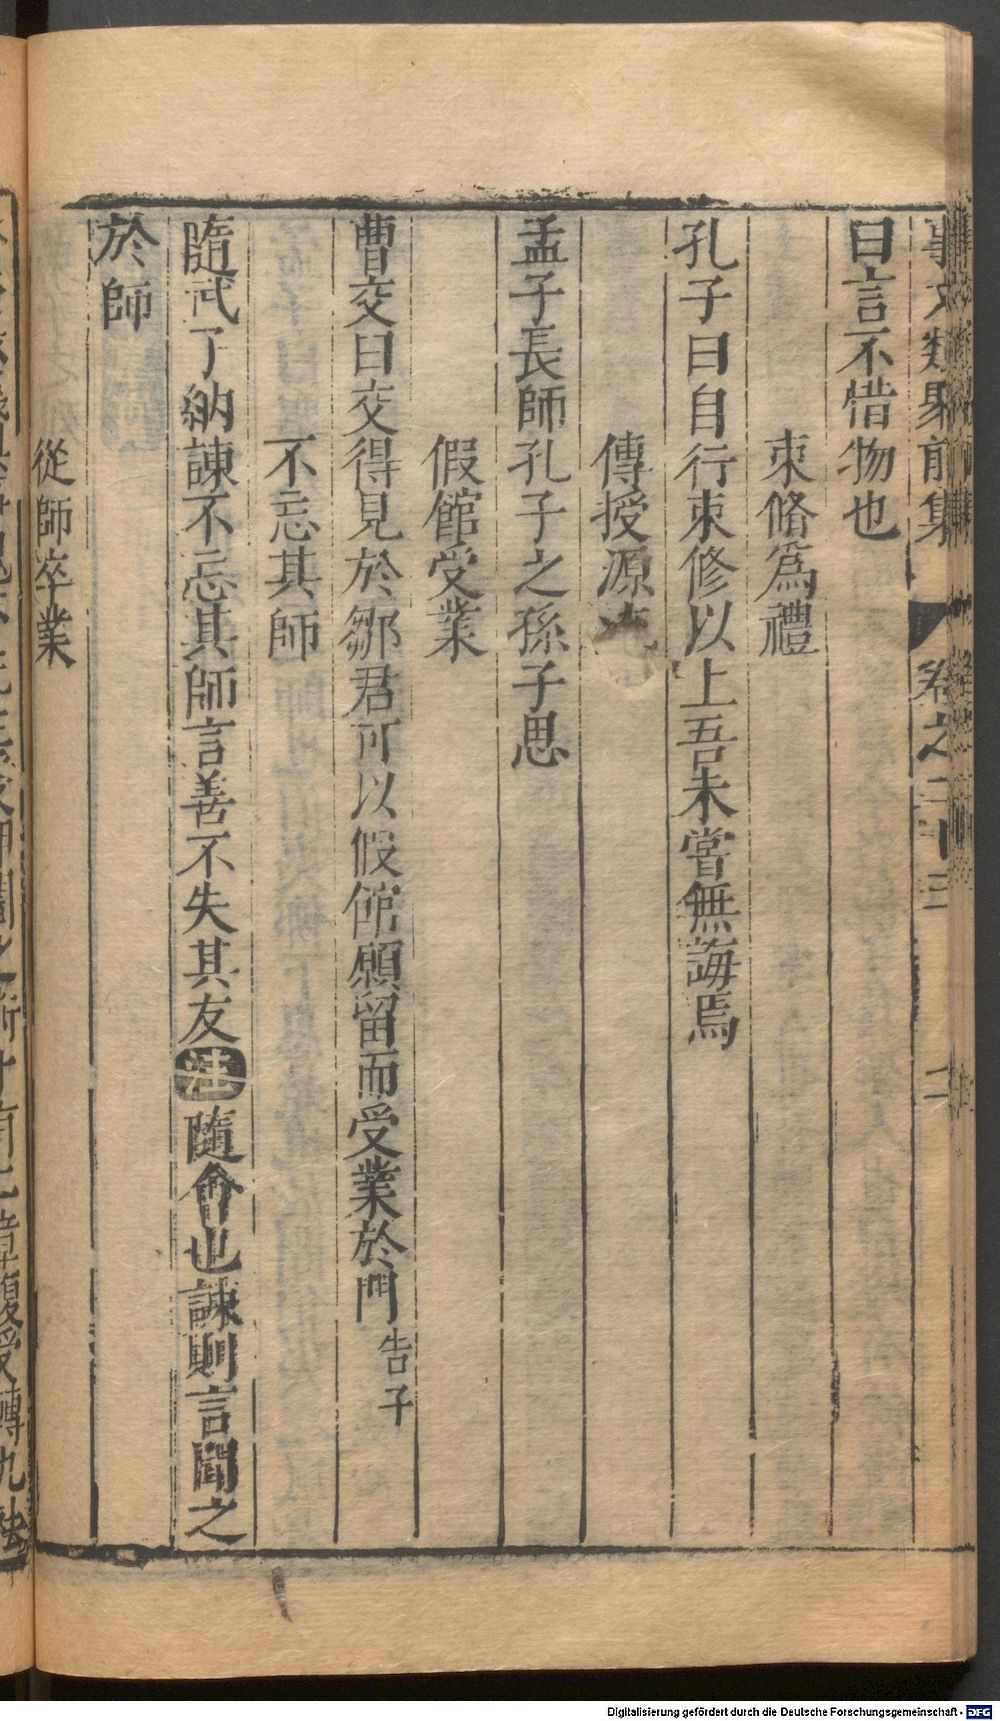 事文類聚前集 卷之二十三 二
曰言不惜物也
束脩爲禮
孔子曰自行束修以上吾未嘗無誨焉
傳授源
孟子長師孔子之孫子思
假館受業
曹交曰交得見於鄒君可以假館願留而受業於門告子
不忘其師
隨武了納諫不忘其師言善不失其友注隨會也諫則言聞之
於師
從師卒業
Digitalisierung gefördert durch die Deutsche Forschungsgemeinschaft - DFG